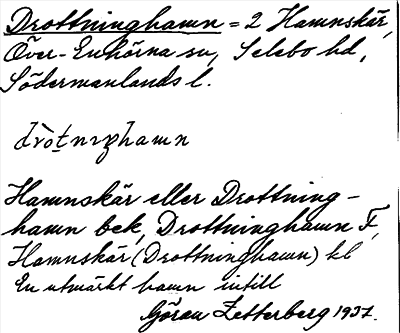 Drottninghamn = 2 Hamnskär,
Över-Enhörna sn, Selebo hd,
Södermanlands l.
dròtnıŋhamn
Hamnskär eller Drottning-
hamn bek, Drottninghamn F,
Hamnskär (Drottninghamn) kl
En utmärkt hamn intill
Göran Zetterberg 1937.